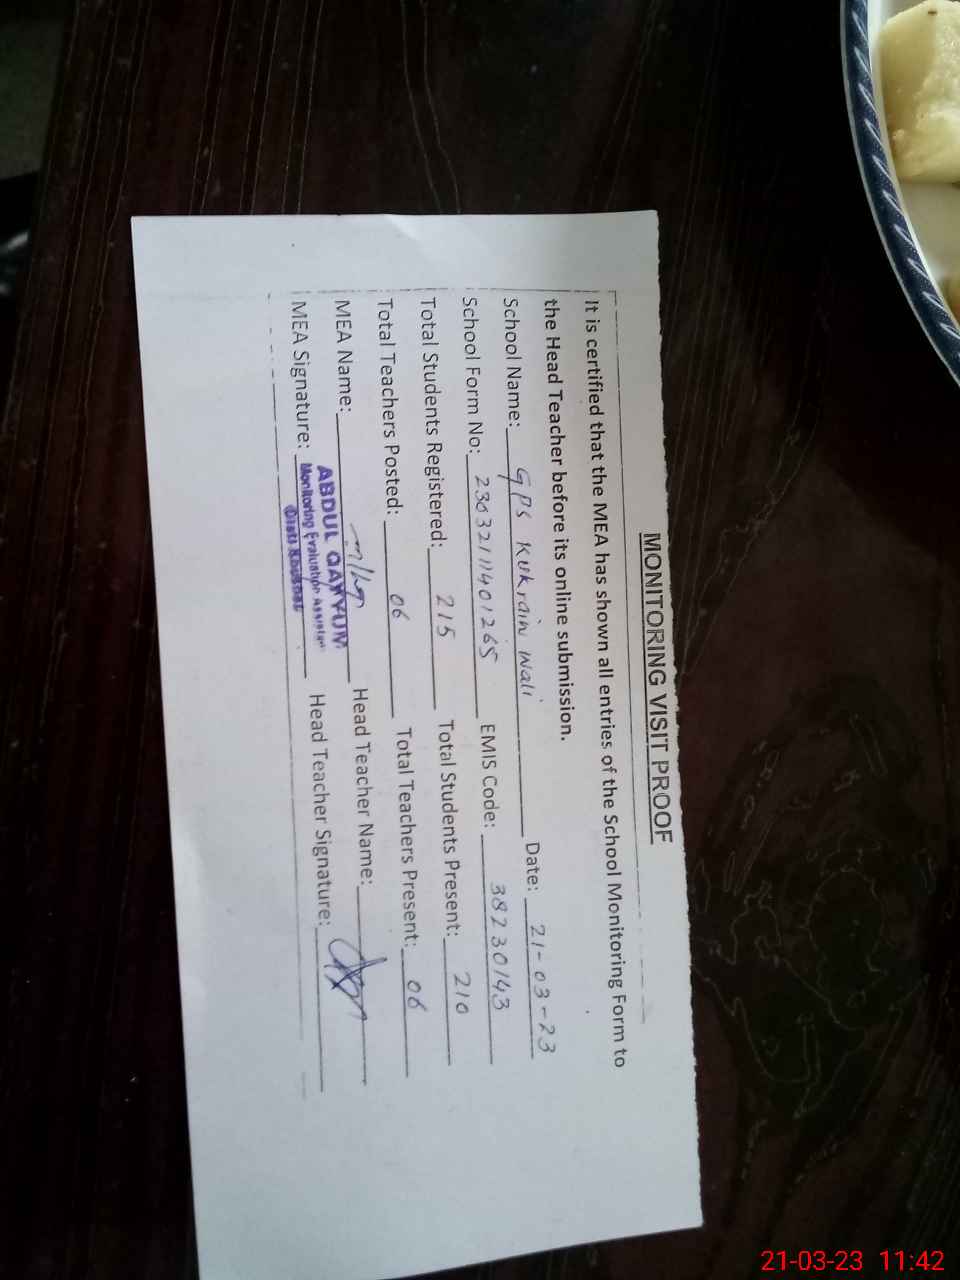 MONITORING VISIT PROOF
It is certified that the MEA has shown all entries of the School Monitoring Form to
the Head Teacher before its online submission.
School Name: GPS Kukrain Wali Date: 21-03-23
School Form No: 2303211401265 EMIS Code: 38230143
Total Students Registered: 215 Total Students Present: 210
Total Teachers Posted: 06 Total Teachers Present: 06
MEA Name: Head Teacher Name:
ABDUL QAYYUM
MEA Signature: Head Teacher Signature:
Monitoring Evaluation Assistant
21-03-23 11:42